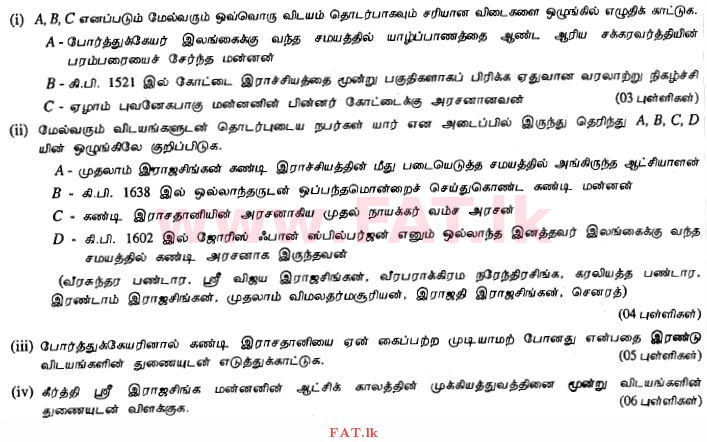 (i) A, B, C எனப்படும் மேல்வரும் ஒவ்வொரு விடயம் தொடர்பாகவும் சரியான விடைகளை ஒழுங்கில் எழுதிக் காட்டுக.
A - போர்த்துக்கேயர் இலங்கைக்கு வந்த சமயத்தில் யாழ்ப்பாணத்தை ஆண்ட ஆரிய சக்கரவர்த்தியின்
பரம்பரையைச் சேர்ந்த மன்னன்
B - கி.பி. 1521 இல் கோட்டை இராச்சியத்தை மூன்று பகுதிகளாகப் பிரிக்க ஏதுவான வரலாற்று நிகழ்ச்சி
C - ஏழாம் புவனேகபாகு மன்னனின் பின்னர் கோட்டைக்கு அரசனானவன் (03 புள்ளிகள்)
(ii) மேல்வரும் விடயங்களுடன் தொடர்புடைய நபர்கள் யார் என அடைப்பில் இருந்து தெரிந்து A, B, C, D
யின் ஒழுங்கிலே குறிப்பிடுக.
A - முதலாம் இராஜசிங்கன் கண்டி இராச்சியத்தின் மீது படையெடுத்த சமயத்தில் அங்கிருந்த ஆட்சியாளன்
B - கி.பி. 1638 இல் ஒல்லாந்தருடன் ஒப்பந்தமொன்றைச் செய்துகொண்ட கண்டி மன்னன்
C - கண்டி இராசதானியின் அரசனாகிய முதல் நாயக்கர் வம்ச அரசன்
D - கி.பி. 1602 இல் ஜோரிஸ் ஃபான் ஸ்பில்பர்ஜன் எனும் ஒல்லாந்த இனத்தவர் இலங்கைக்கு வந்த
சமயத்தில் கண்டி அரசனாக இருந்தவன்
(வீரசுந்தர பண்டார, ஸ்ரீ விஜய இராஜசிங்கன், வீரபராக்கிரம நரேந்திரசிங்க, கரலியத்த பண்டார,
இரண்டாம் இராஜசிங்கன், முதலாம் விமலதர்மசூரியன், இராஜதி இராஜசிங்கன், செனரத்)
(04 புள்ளிகள்)
(iii) போர்த்துக்கேயரினால் கண்டி இராசதானியை ஏன் கைப்பற்ற முடியாமற் போனது என்பதை இரண்டு
விடயங்களின் துணையுடன் எடுத்துக்காட்டுக. (05 புள்ளிகள்)
(iv) கீர்த்தி ஸ்ரீ இராஜசிங்க மன்னனின் ஆட்சிக் காலத்தின் முக்கியத்துவத்தினை மூன்று விடயங்களின்
துணையுடன் விளக்குக. (06 புள்ளிகள்)
www.FAT.lk
FAT.lk